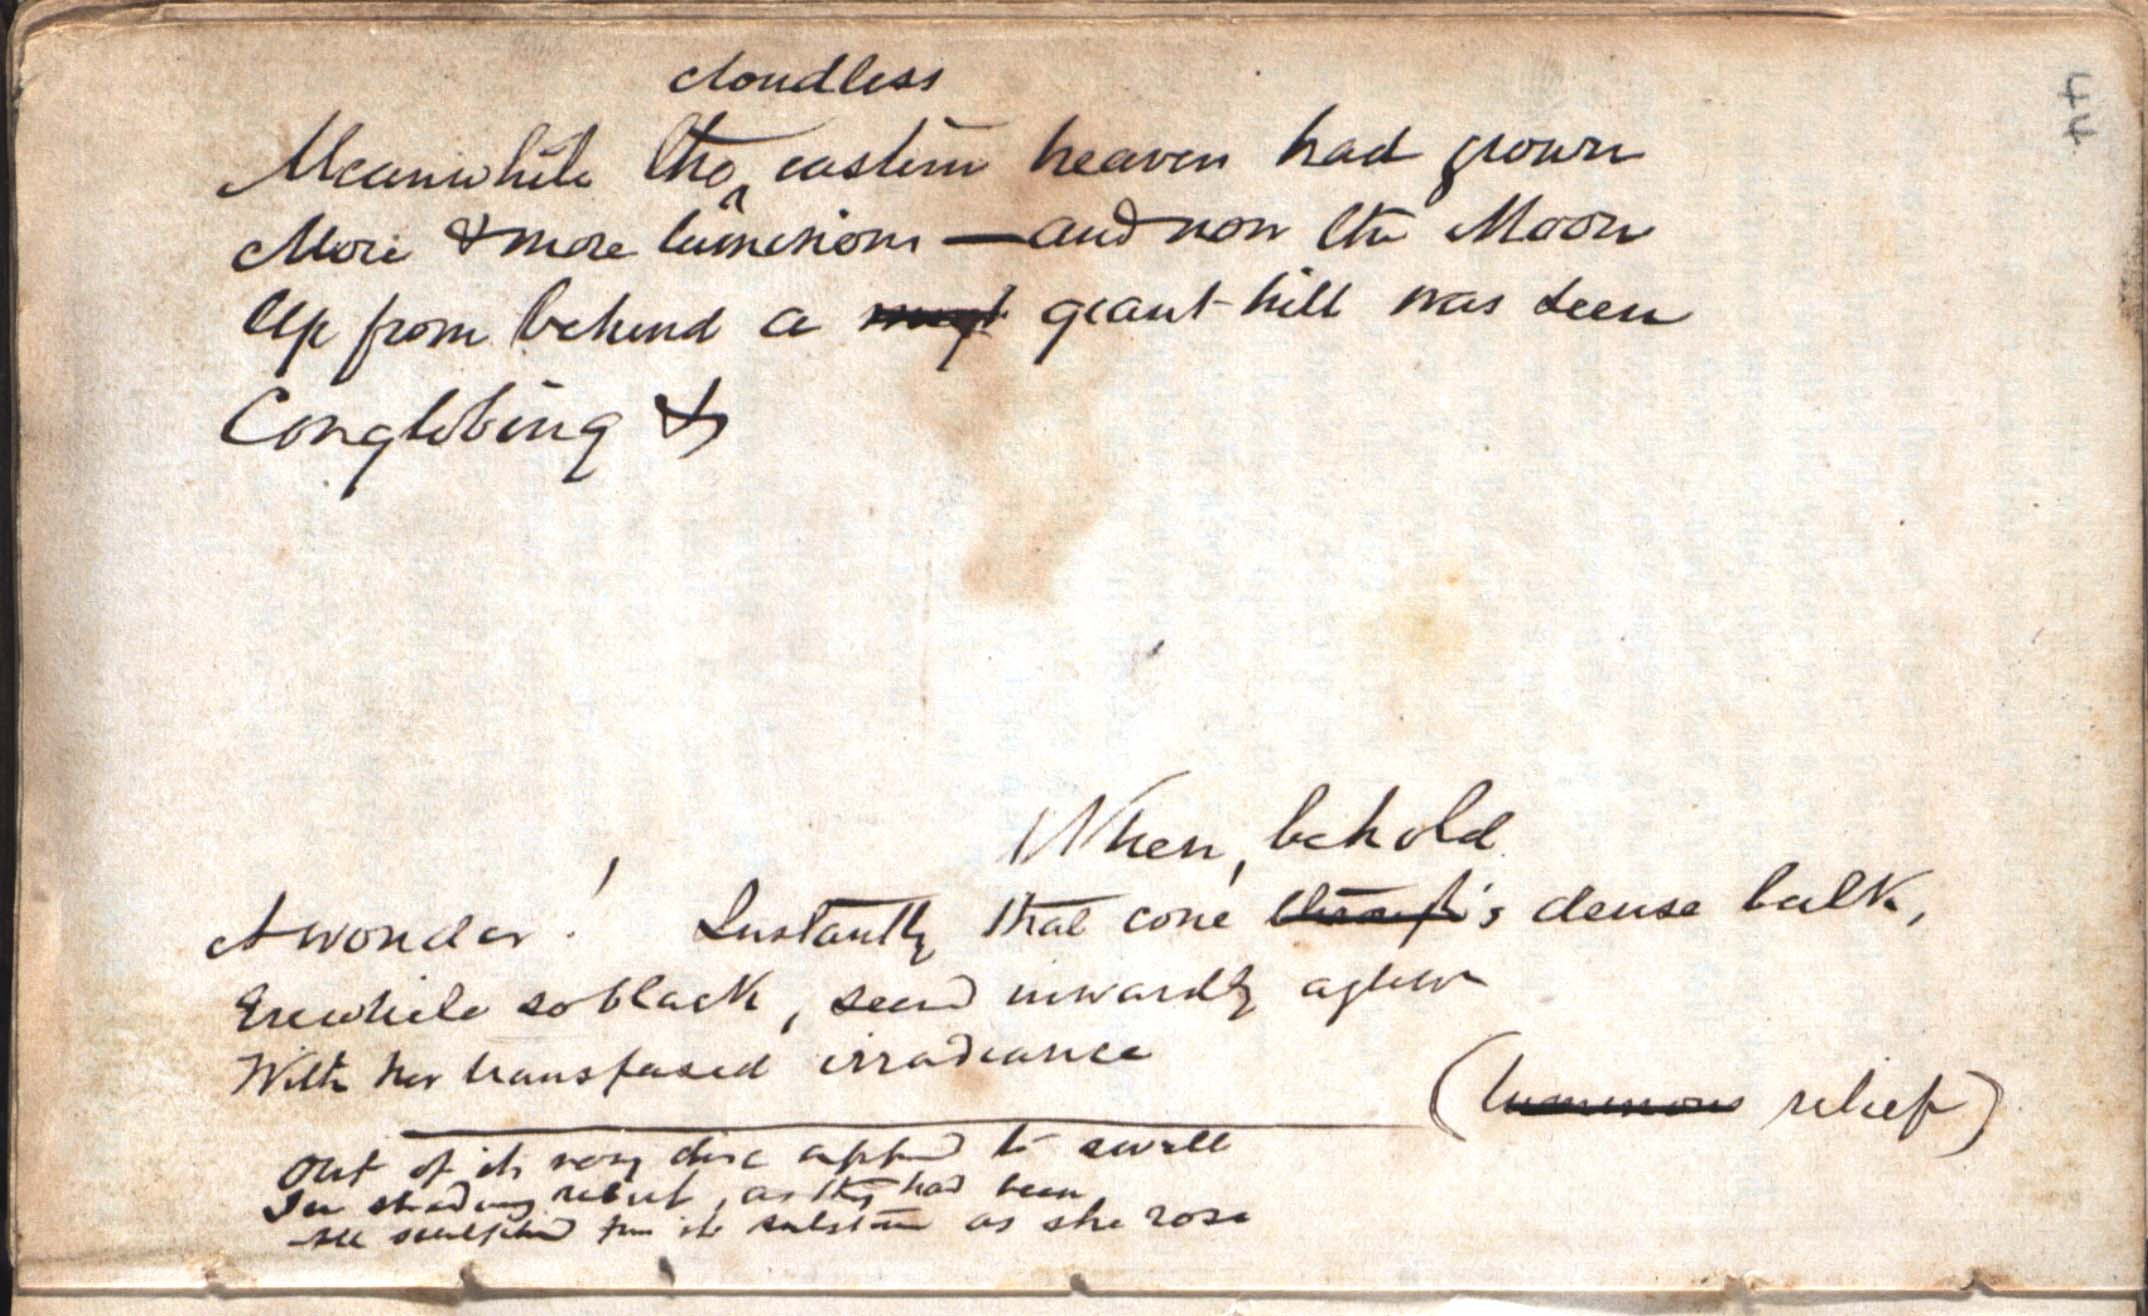 cloudless
Meanwhile the eastern heaven had grown
More & more luminious — and now the Moon
Up from behind a giant hill was seen
Conglobing &
When, behold
A wonder! Instantly that cone's dense bulk,
Erewhile so black, seem'd inwardly aglow
With her transfused irradiance
(luminous relief)
Out of its very disc appd to swell
In shadowy relief, as they had been
All sculptured from its substance as she rose
44